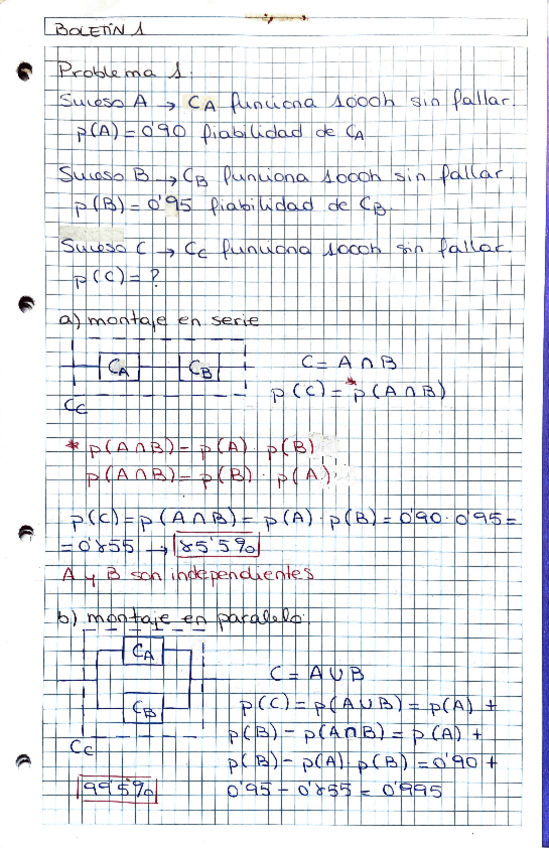 BOLETIN 1
Problema 1.
Suceso A → CA funciona 1000h sin fallar.
p(A) = 0'90 fiabilidad de CA
Suceso B → CB funciona 1000h sin fallar.
p(B) = 0'95 fiabilidad de CB.
Suceso C → Cc funciona 1000h sin fallar.
p(C) = ?
a) montaje en serie
CA CB
Cc
C = A ∩ B
p(C) = * p(A ∩ B)
* p(A ∩ B) = p(A) · p(B)
p(A ∩ B) = p(B) · p(A)
p(C) = p(A ∩ B) = p(A) · p(B) = 0'90 · 0'95 =
= 0'855 → 85'5%
A y B son independientes
b) montaje en paralelo.
CA
CB
Cc
C = A ∪ B
p(C) = p(A ∪ B) = p(A) +
p(B) - p(A ∩ B) = p(A) +
p(B) - p(A) · p(B) = 0'90 +
0'95 - 0'855 = 0'995
99'5%